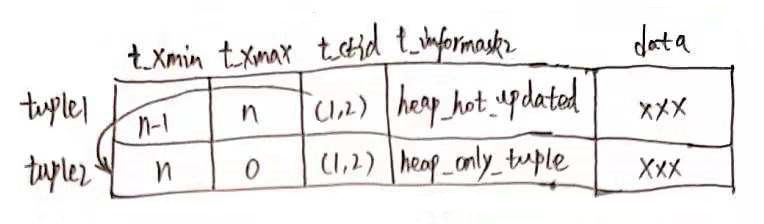 t_xmin t_xmax t_ctid t_informask2 data
tuple1 n-1 n (1,2) heap_hot_updated xxx
tuple2 n 0 (1,2) heap_only_tuple xxx